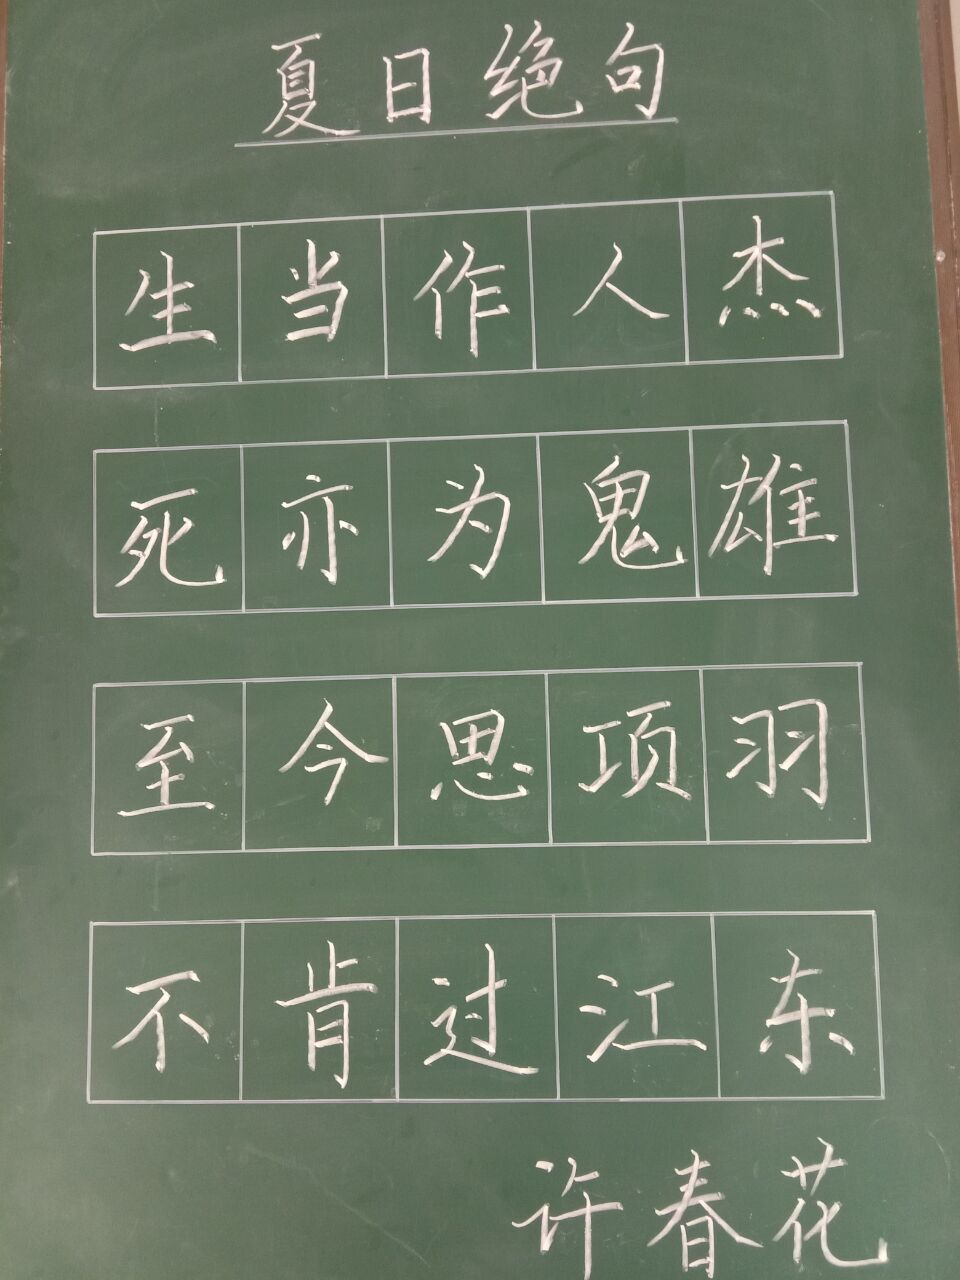 夏日绝句
生当作人杰
死亦为鬼雄
至今思项羽
不肯过江东
许春花